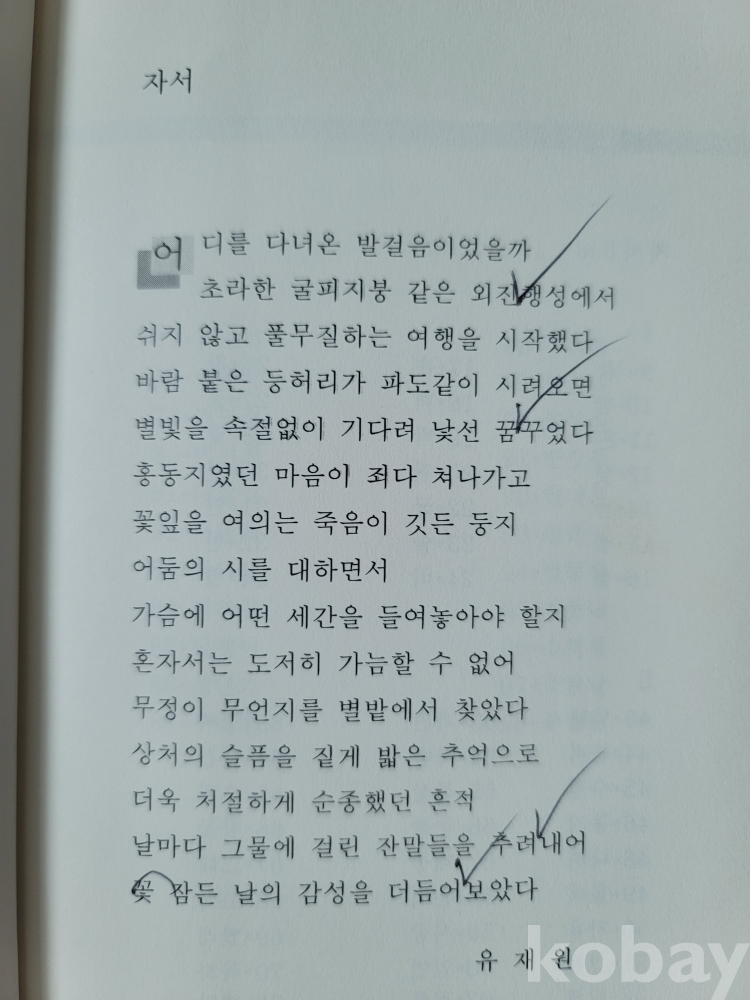 자서
어디를 다녀온 발걸음이었을까
초라한 굴피지붕 같은 외진행성에서
쉬지 않고 풀무질하는 여행을 시작했다
바람 붙은 등허리가 파도같이 시려오면
별빛을 속절없이 기다려 낯선 꿈꾸었다
홍동지였던 마음이 죄다 쳐나가고
꽃잎을 여의는 죽음이 깃든 둥지
어둠의 시를 대하면서
가슴에 어떤 세간을 들여놓아야 할지
혼자서는 도저히 가늠할 수 없어
무정이 무언지를 별밭에서 찾았다
상처의 슬픔을 짙게 밟은 추억으로
더욱 처절하게 순종했던 흔적
날마다 그물에 걸린 잔말들을 추려내어
꽃 잠든 날의 감성을 더듬어보았다
유재원
kobay